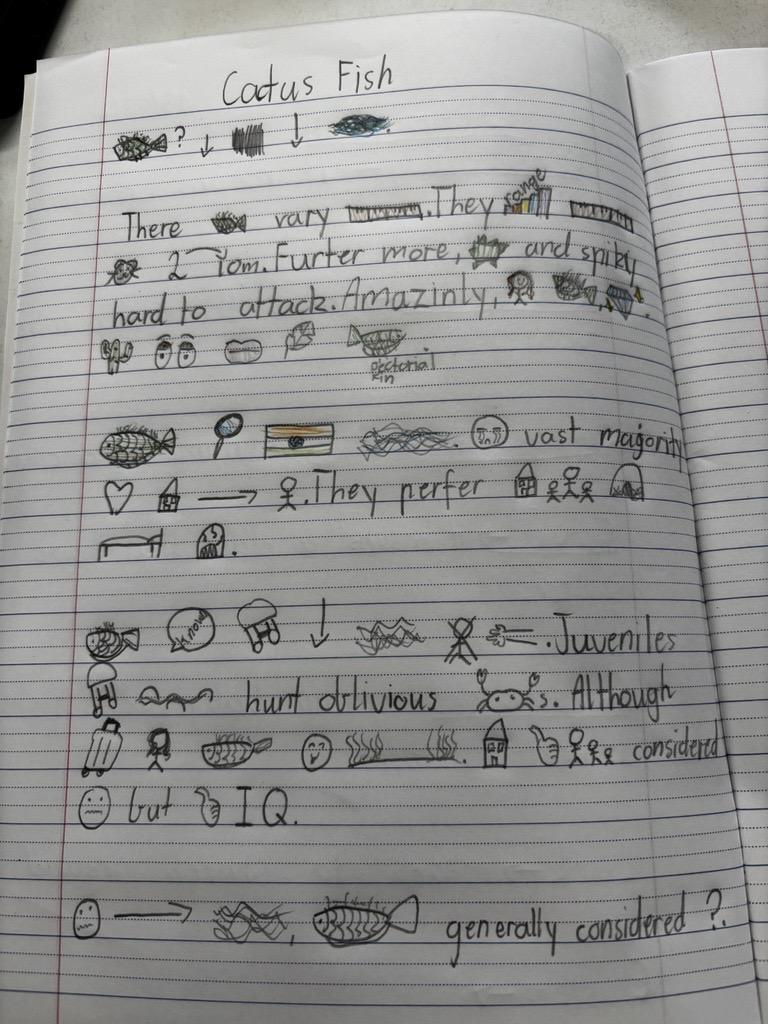 Cactus Fish
?
There vary . They range
2 10m. Furter more, and spiky
hard to attack. Amazinly, , .
pectorial
fin
. vast magority
. They perfer
.
know . Juveniles
hunt oblivious s. Although
. considered
but IQ.
, generally considered ?